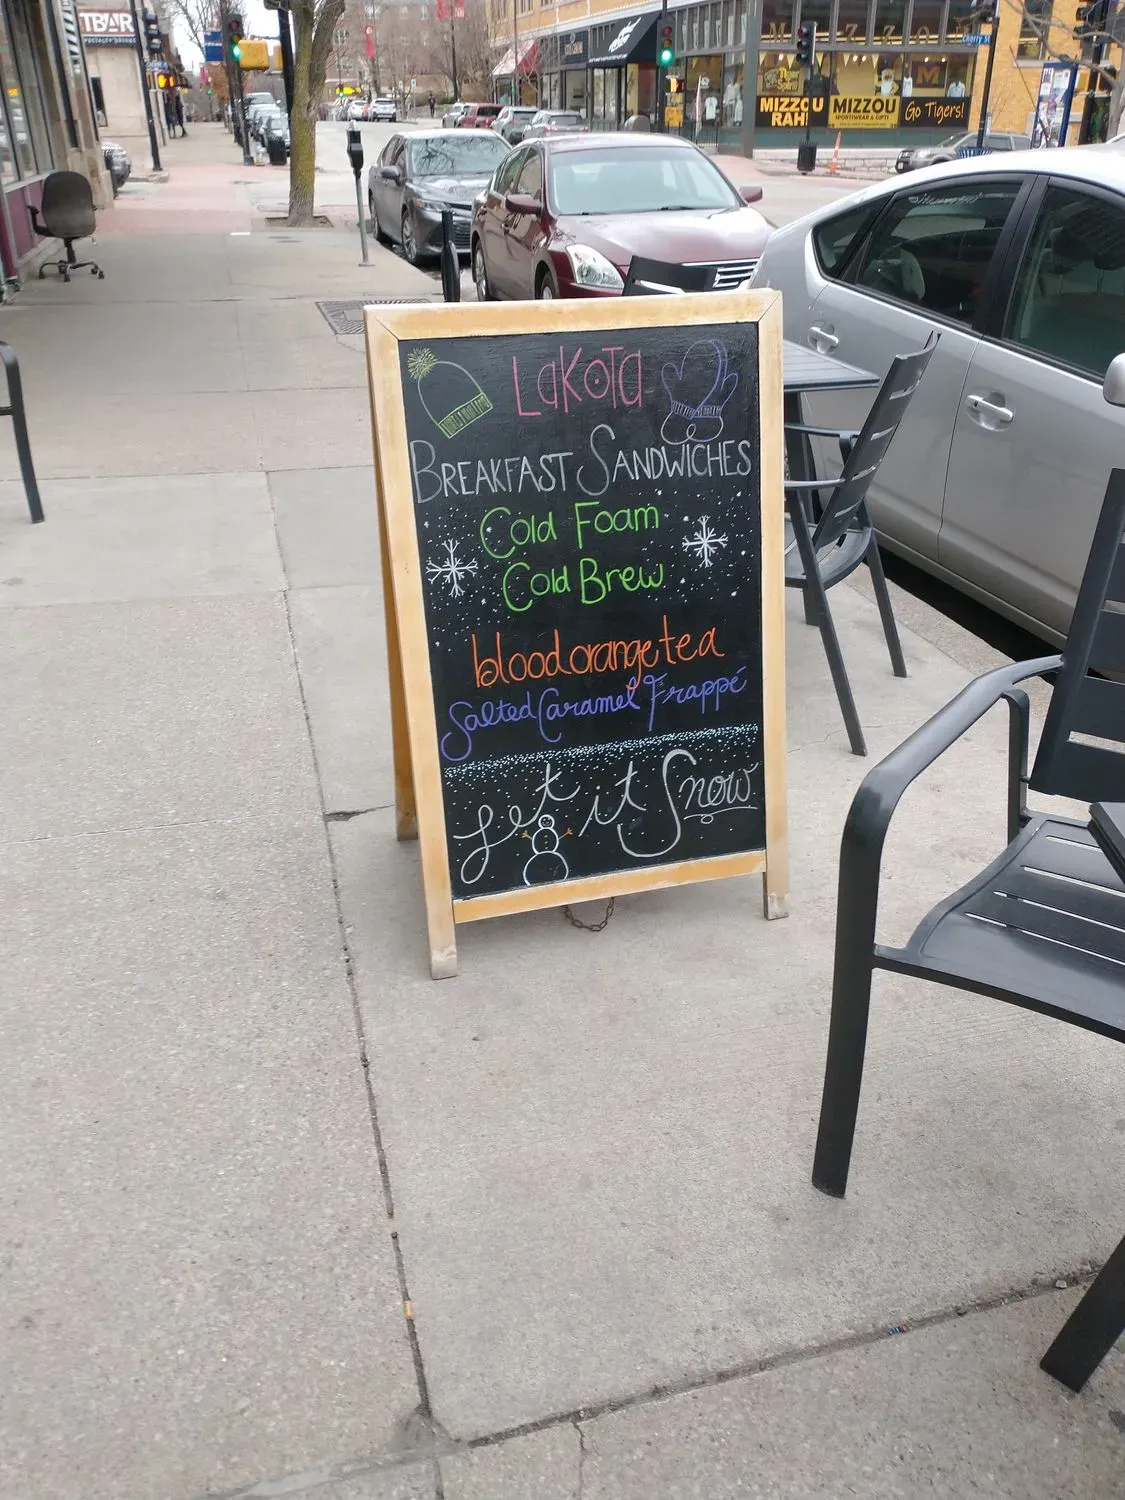 TBAR
SPECIALTY DRINKS
MIZZOU
RAH!
MIZZOU
SPORTSWEAR & GIFTS
Go Tigers!
M
Cherry St
LaKoTa
BREAKFAST SANDWICHES
Cold Foam
Cold Brew
blood orange tea
Salted Caramel Frappé
Let it Snow